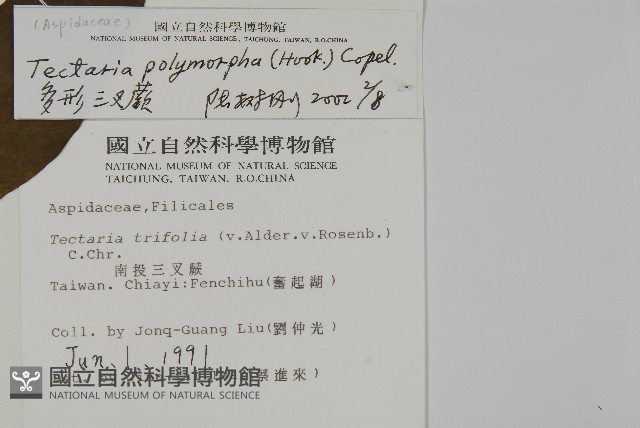 (Aspidaceae)
國立自然科學博物館
NATIONAL MUSEUM OF NATURAL SCIENCE, TAICHUNG, TAIWAN, R.O.CHINA
Tectaria polymorpha (Hook.) Copel.
多形三叉蕨 2002 2/8
國立自然科學博物館
NATIONAL MUSEUM OF NATURAL SCIENCE
TAICHUNG, TAIWAN, R.O.CHINA
Aspidaceae,Filicales
Tectaria trifolia (v.Alder.v.Rosenb.)
C.Chr.
南投三叉蕨
Taiwan. Chiayi:Fenchihu(奮起湖)
Coll. by Jonq-Guang Liu(劉仲光)
Jun. 1, 1991
進來)
國立自然科學博物館
NATIONAL MUSEUM OF NATURAL SCIENCE